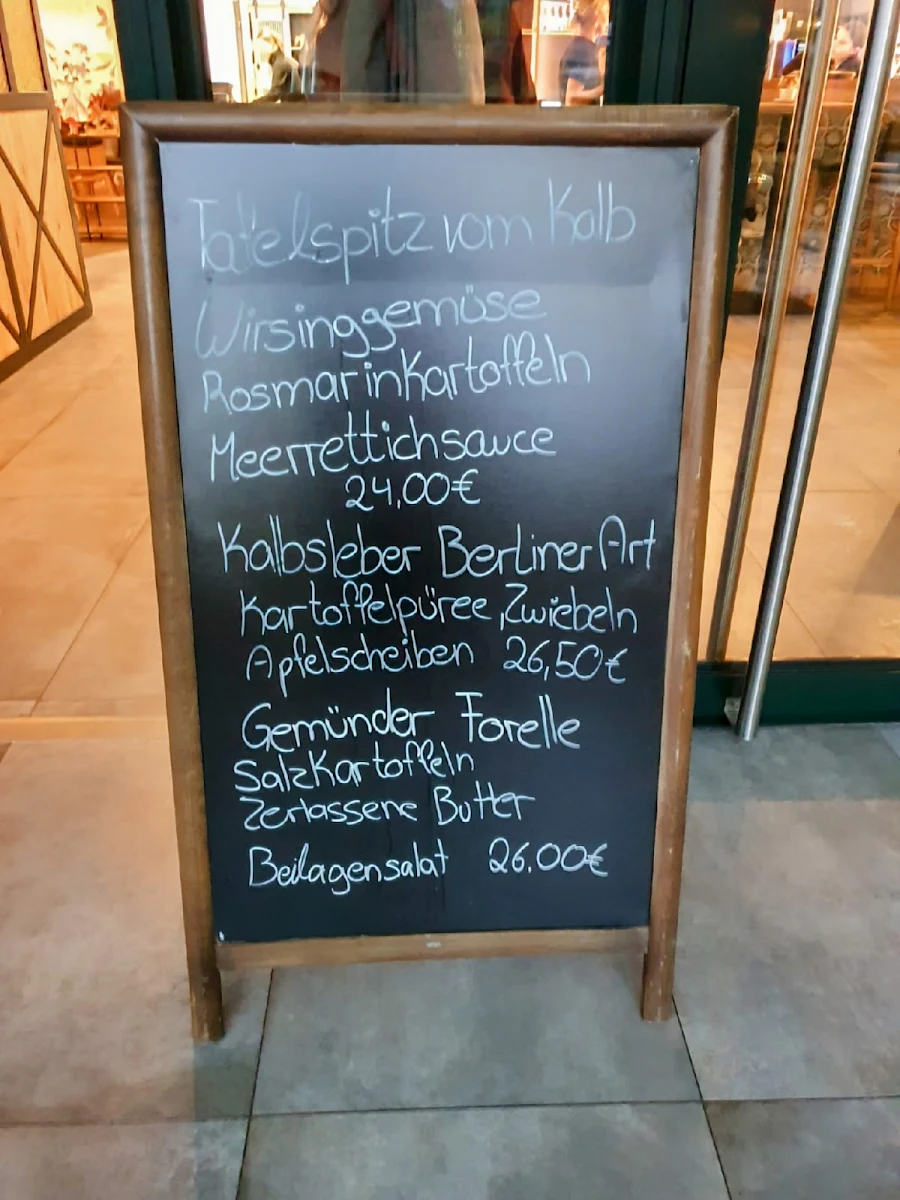 Tafelspitz vom Kalb
Wirsinggemüse
Rosmarinkartoffeln
Meerrettichsauce
24,00€
Kalbsleber Berliner Art
Kartoffelpüree, Zwiebeln
Apfelscheiben 26,50€
Gemünder Forelle
Salzkartoffeln
Zerlassene Butter
Beilagensalat 26.00€